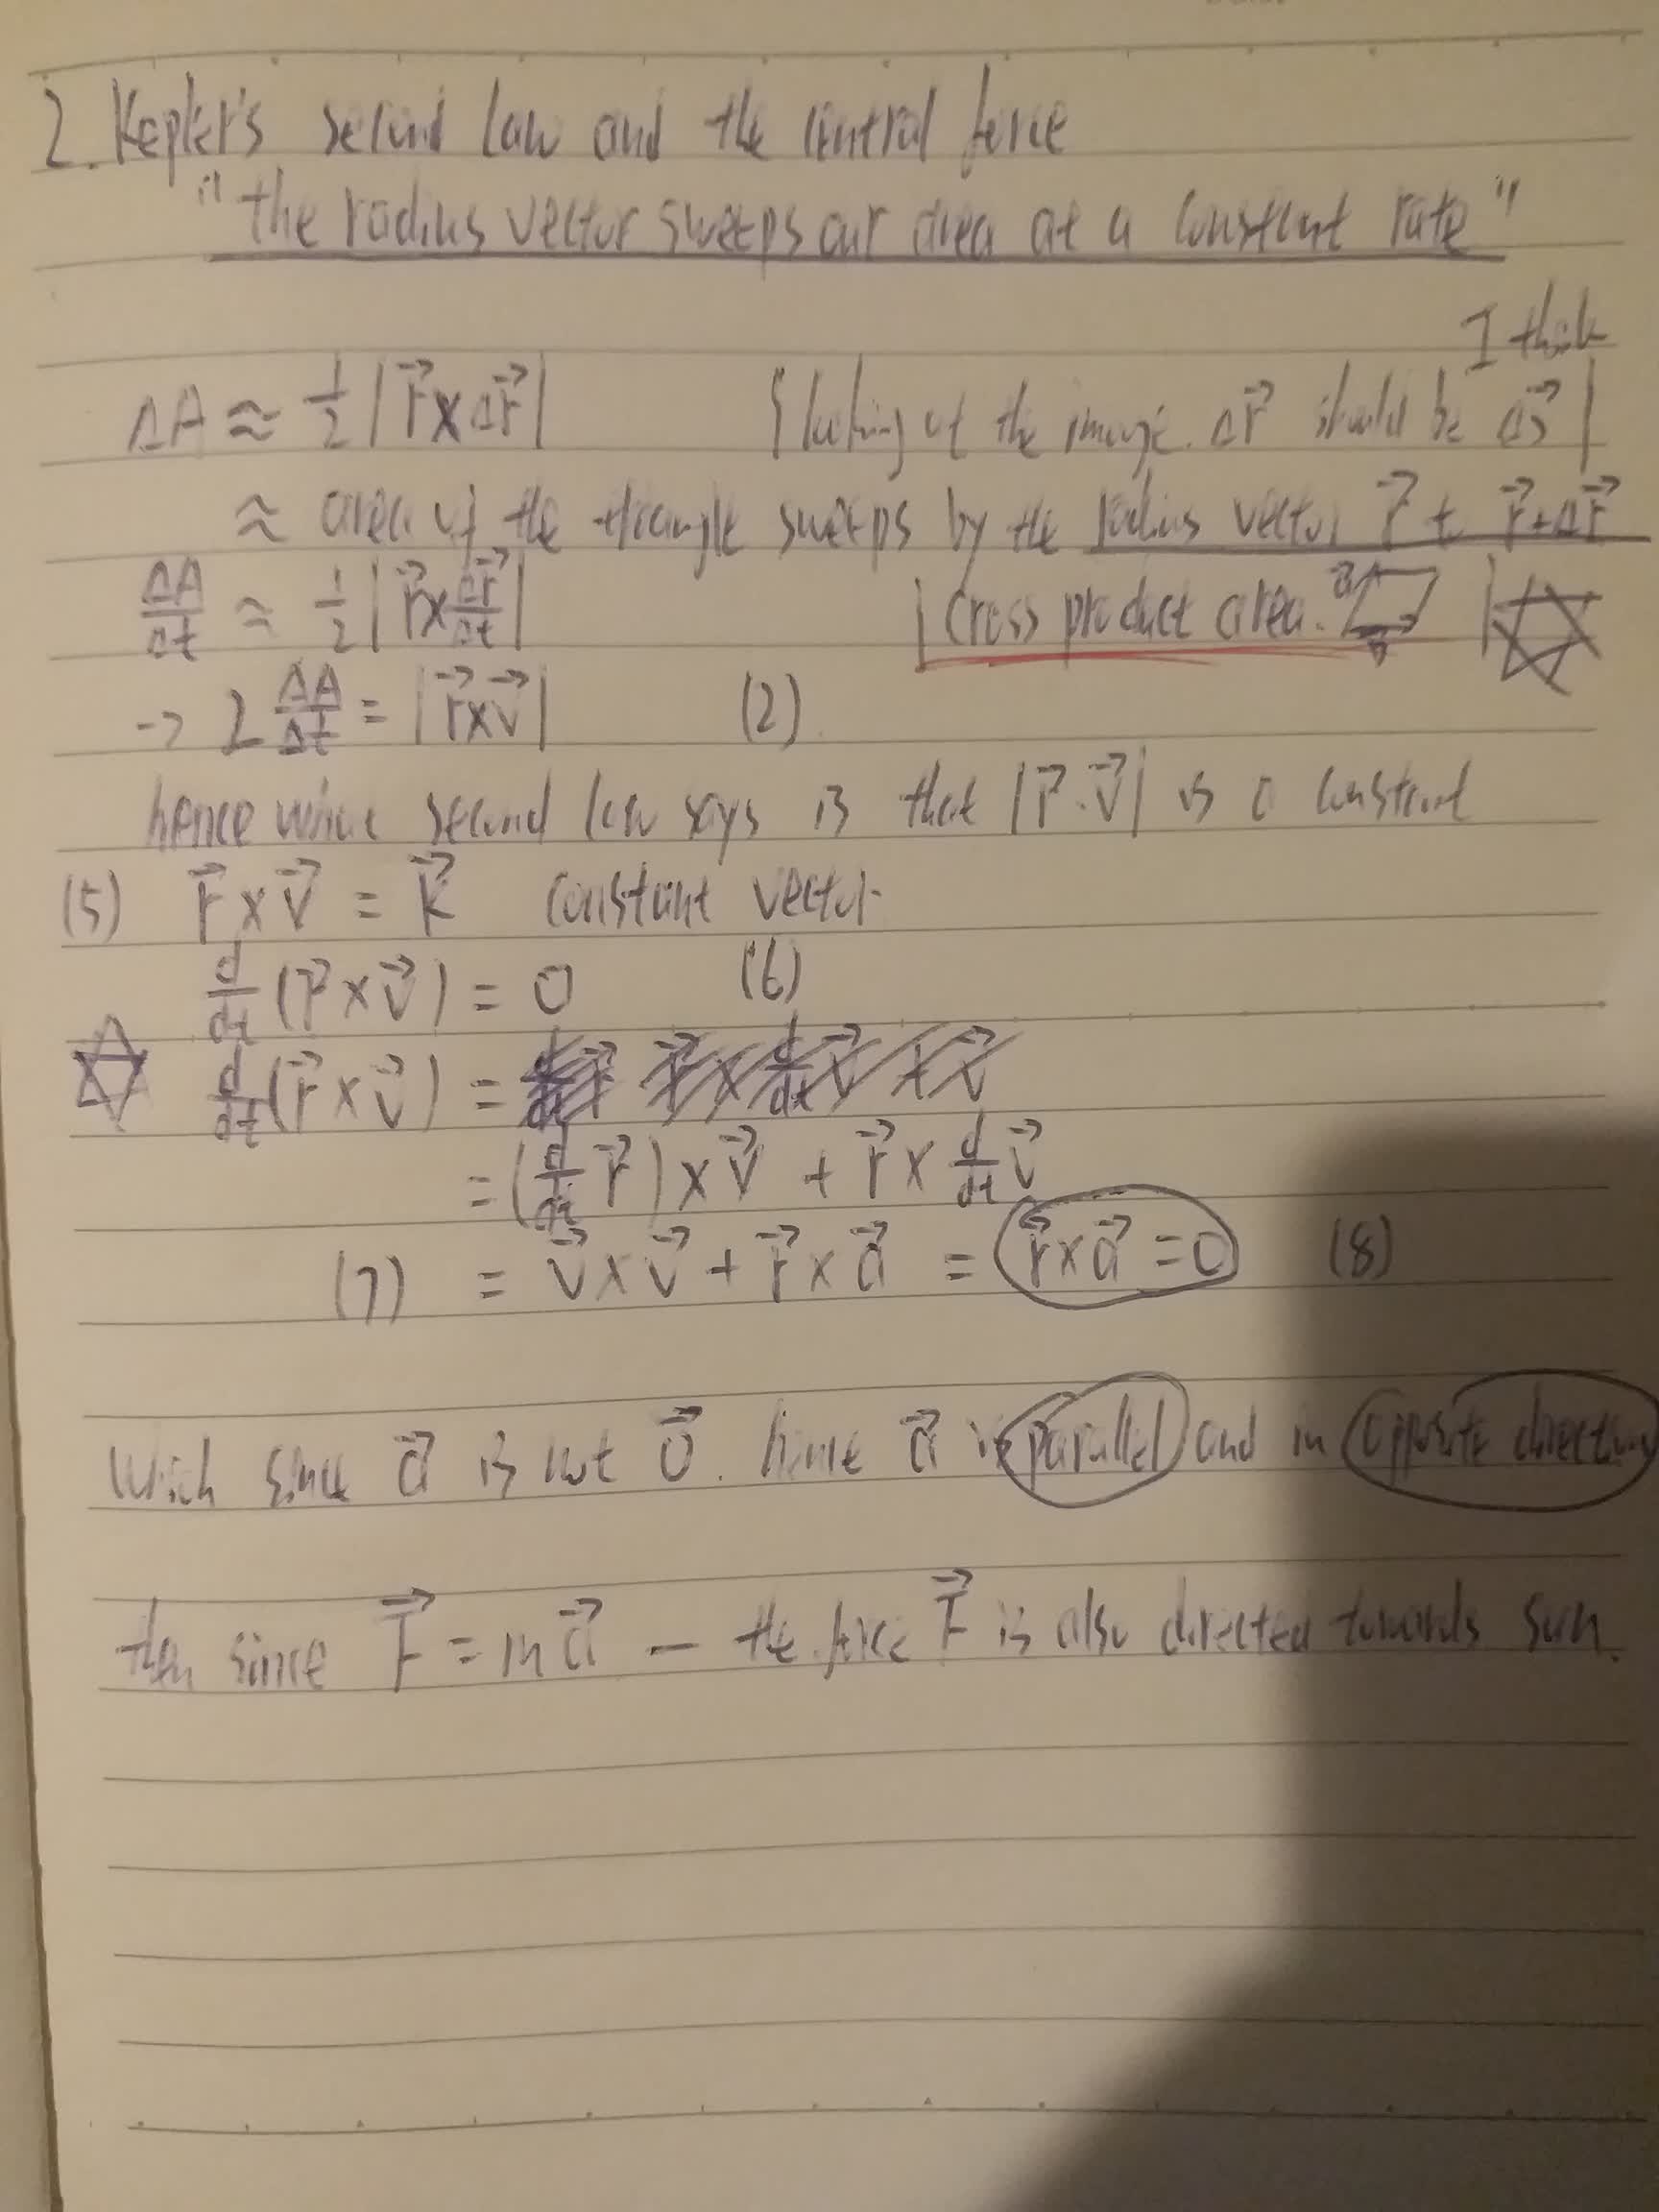 2. Kepler's second law and the central force
"the radius vector sweeps out area at a constant rate"
I think
ΔA ≈ 1/2 |r⃗ × Δr⃗| | looking at the image. Δr⃗ should be Δs⃗ |
≈ area of the triangle sweeps by the radius vector r⃗ + r⃗+Δr⃗
ΔA/Δt ≈ 1/2 |r⃗ × Δr⃗/Δt| | cross product area. a⃗ b |
→ 2 ΔA/Δt = |r⃗×v⃗| (2)
hence what second law says is that |r⃗·v⃗| is a constant
(5) r⃗ × v⃗ = K⃗ constant vector
d/dt (r⃗ × v⃗) = 0 (6)
d/dt (r⃗ × v⃗) =
= (d/dt r⃗) × v⃗ + r⃗ × d/dt v⃗
(7) = v⃗ × v⃗ + r⃗ × a⃗ = r⃗×a⃗ = 0 (8)
which since a⃗ is not 0⃗. hence a⃗ is parallel and in opposite direction
then since F⃗ = ma⃗ — the force F⃗ is also directed towards sun.